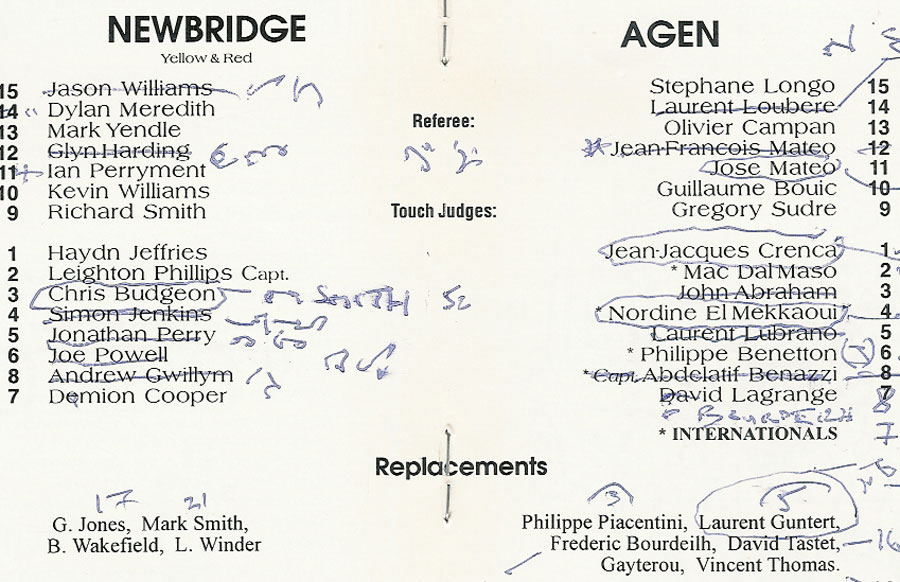 NEWBRIDGE
Yellow & Red
15 Jason Williams
14 Dylan Meredith
13 Mark Yendle
12 Glyn Harding
11 Ian Perryment
10 Kevin Williams
9 Richard Smith
1 Haydn Jeffries
2 Leighton Phillips Capt.
3 Chris Budgeon
4 Simon Jenkins
5 Jonathan Perry
6 Joe Powell
8 Andrew Gwillym
7 Demion Cooper
Referee:
Touch Judges:
AGEN
Stephane Longo 15
Laurent Loubere 14
Olivier Campan 13
* Jean-Francois Mateo 12
Jose Mateo 11
Guillaume Bouic 10
Gregory Sudre 9
Jean-Jacques Crenca 1
* Mac Dal Maso 2
John Abraham 3
* Nordine El Mekkaoui 4
Laurent Lubrano 5
* Philippe Benetton 6
* Capt. Abdelatif Benazzi 8
David Lagrange 7
8
* INTERNATIONALS 7
Replacements
17 21
G. Jones, Mark Smith,
B. Wakefield, L. Winder
3 5
Philippe Piacentini, Laurent Guntert,
Frederic Bourdeilh, David Tastet, 16
Gayterou, Vincent Thomas.